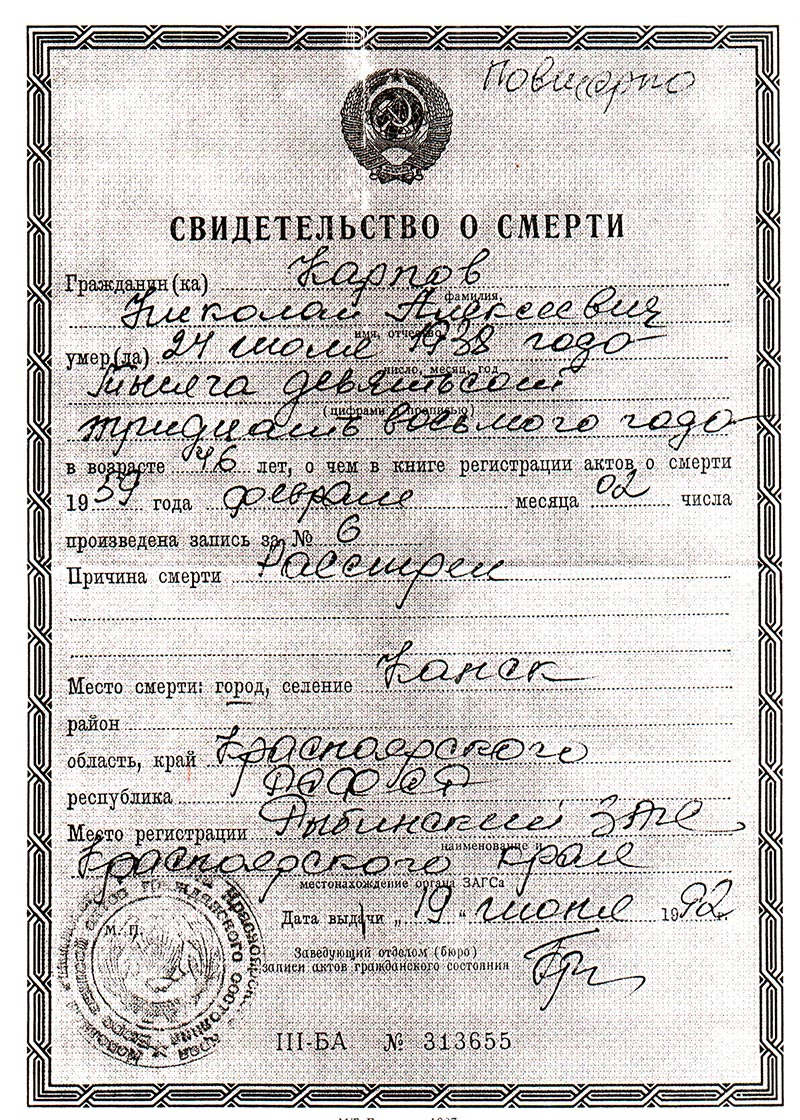 Повторно
СВИДЕТЕЛЬСТВО О СМЕРТИ
Гражданин(ка) Карпов
фамилия,
Николай Алексеевич
имя, отчество
умер(ла) 24 июля 1938 года
число, месяц, год
тысяча девятьсот
(цифрами и прописью)
тридцать восьмого года
в возрасте 46 лет, о чем в книге регистрации актов о смерти
1959 года февраля месяца 02 числа
произведена запись за № 6
Причина смерти Расстрел
Место смерти: город, селение Канск
район
область, край Красноярского
республика РСФСР
Место регистрации Рыбинский ЗАГС
наименование и
Красноярского края
местонахождение органа ЗАГСа
Дата выдачи „19“ июня 1992 г.
М. П.
Заведующий отделом (бюро)
записи актов гражданского состояния
III-БА № 313655